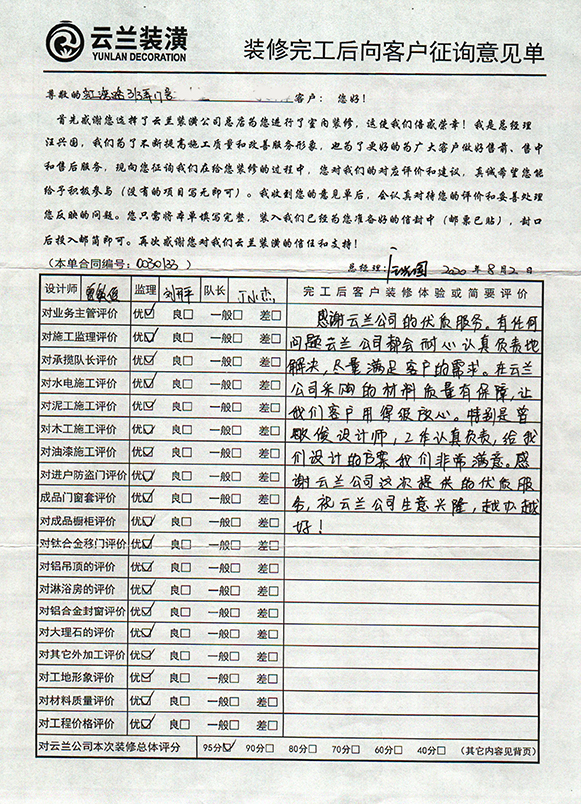 云兰装潢
YUNLAN DECORATION
装修完工后向客户征询意见单
尊敬的 客户：您好！
首先感谢您选择了云兰装潢公司总店为您进行了室内装修，这使我们倍感荣幸！我是总经理
汪兴国，我们为了不断提高施工质量和改善服务形象，也为了更好的为广大客户做好售前、售中
和售后服务，现向您征询我们在给您装修的过程中，您对我们的对应评价和建议，真诚希望您能
给予积极参与（没有的项目写无即可）。我收到您的意见单后，会认真对待您的评价和妥善处理
您反映的问题。您只需将本单填写完整，装入我们已经为您准备好的信封中（邮票已贴），封口
后投入邮筒即可。再次感谢您对我们云兰装潢的信任和支持！
（本单合同编号：0030133） 总经理： 2020年8月2日
设计师 曾敏俊 监理 队长 完工后客户装修体验或简要评价
对业务主管评价 优☑ 良□ 一般□ 差□ 感谢云兰公司的优质服务。有任何
对施工监理评价 优☑ 良□ 一般□ 差□ 问题云兰公司都会耐心认真负责地
对承揽队长评价 优☑ 良□ 一般□ 差□ 解决，尽量满足客户的需求。在云兰
对水电施工评价 优☑ 良□ 一般□ 差□ 公司采购的材料质量有保障，让
对泥工施工评价 优☑ 良□ 一般□ 差□ 我们客户用得很放心。特别是曾
对木工施工评价 优☑ 良□ 一般□ 差□ 敏俊设计师，工作认真负责，给我
对油漆施工评价 优☑ 良□ 一般□ 差□ 们设计的方案我们非常满意。感
对进户防盗门评价 优☑ 良□ 一般□ 差□ 谢云兰公司这次提供的优质服
成品门窗套评价 优☑ 良□ 一般□ 差□ 务，祝云兰公司生意兴隆，越办越
对成品橱柜评价 优☑ 良□ 一般□ 差□ 好！
对钛合金移门评价 优☑ 良□ 一般□ 差□
对铝吊顶的评价 优☑ 良□ 一般□ 差□
对淋浴房的评价 优☑ 良□ 一般□ 差□
对铝合金封窗评价 优☑ 良□ 一般□ 差□
对大理石的评价 优☑ 良□ 一般□ 差□
对其它外加工评价 优☑ 良□ 一般□ 差□
对工地形象评价 优☑ 良□ 一般□ 差□
对材料质量评价 优☑ 良□ 一般□ 差□
对工程价格评价 优☑ 良□ 一般□ 差□
对云兰公司本次装修总体评分 95分☑ 90分□ 80分□ 70分□ 60分□ 40分□ （其它内容见背页）